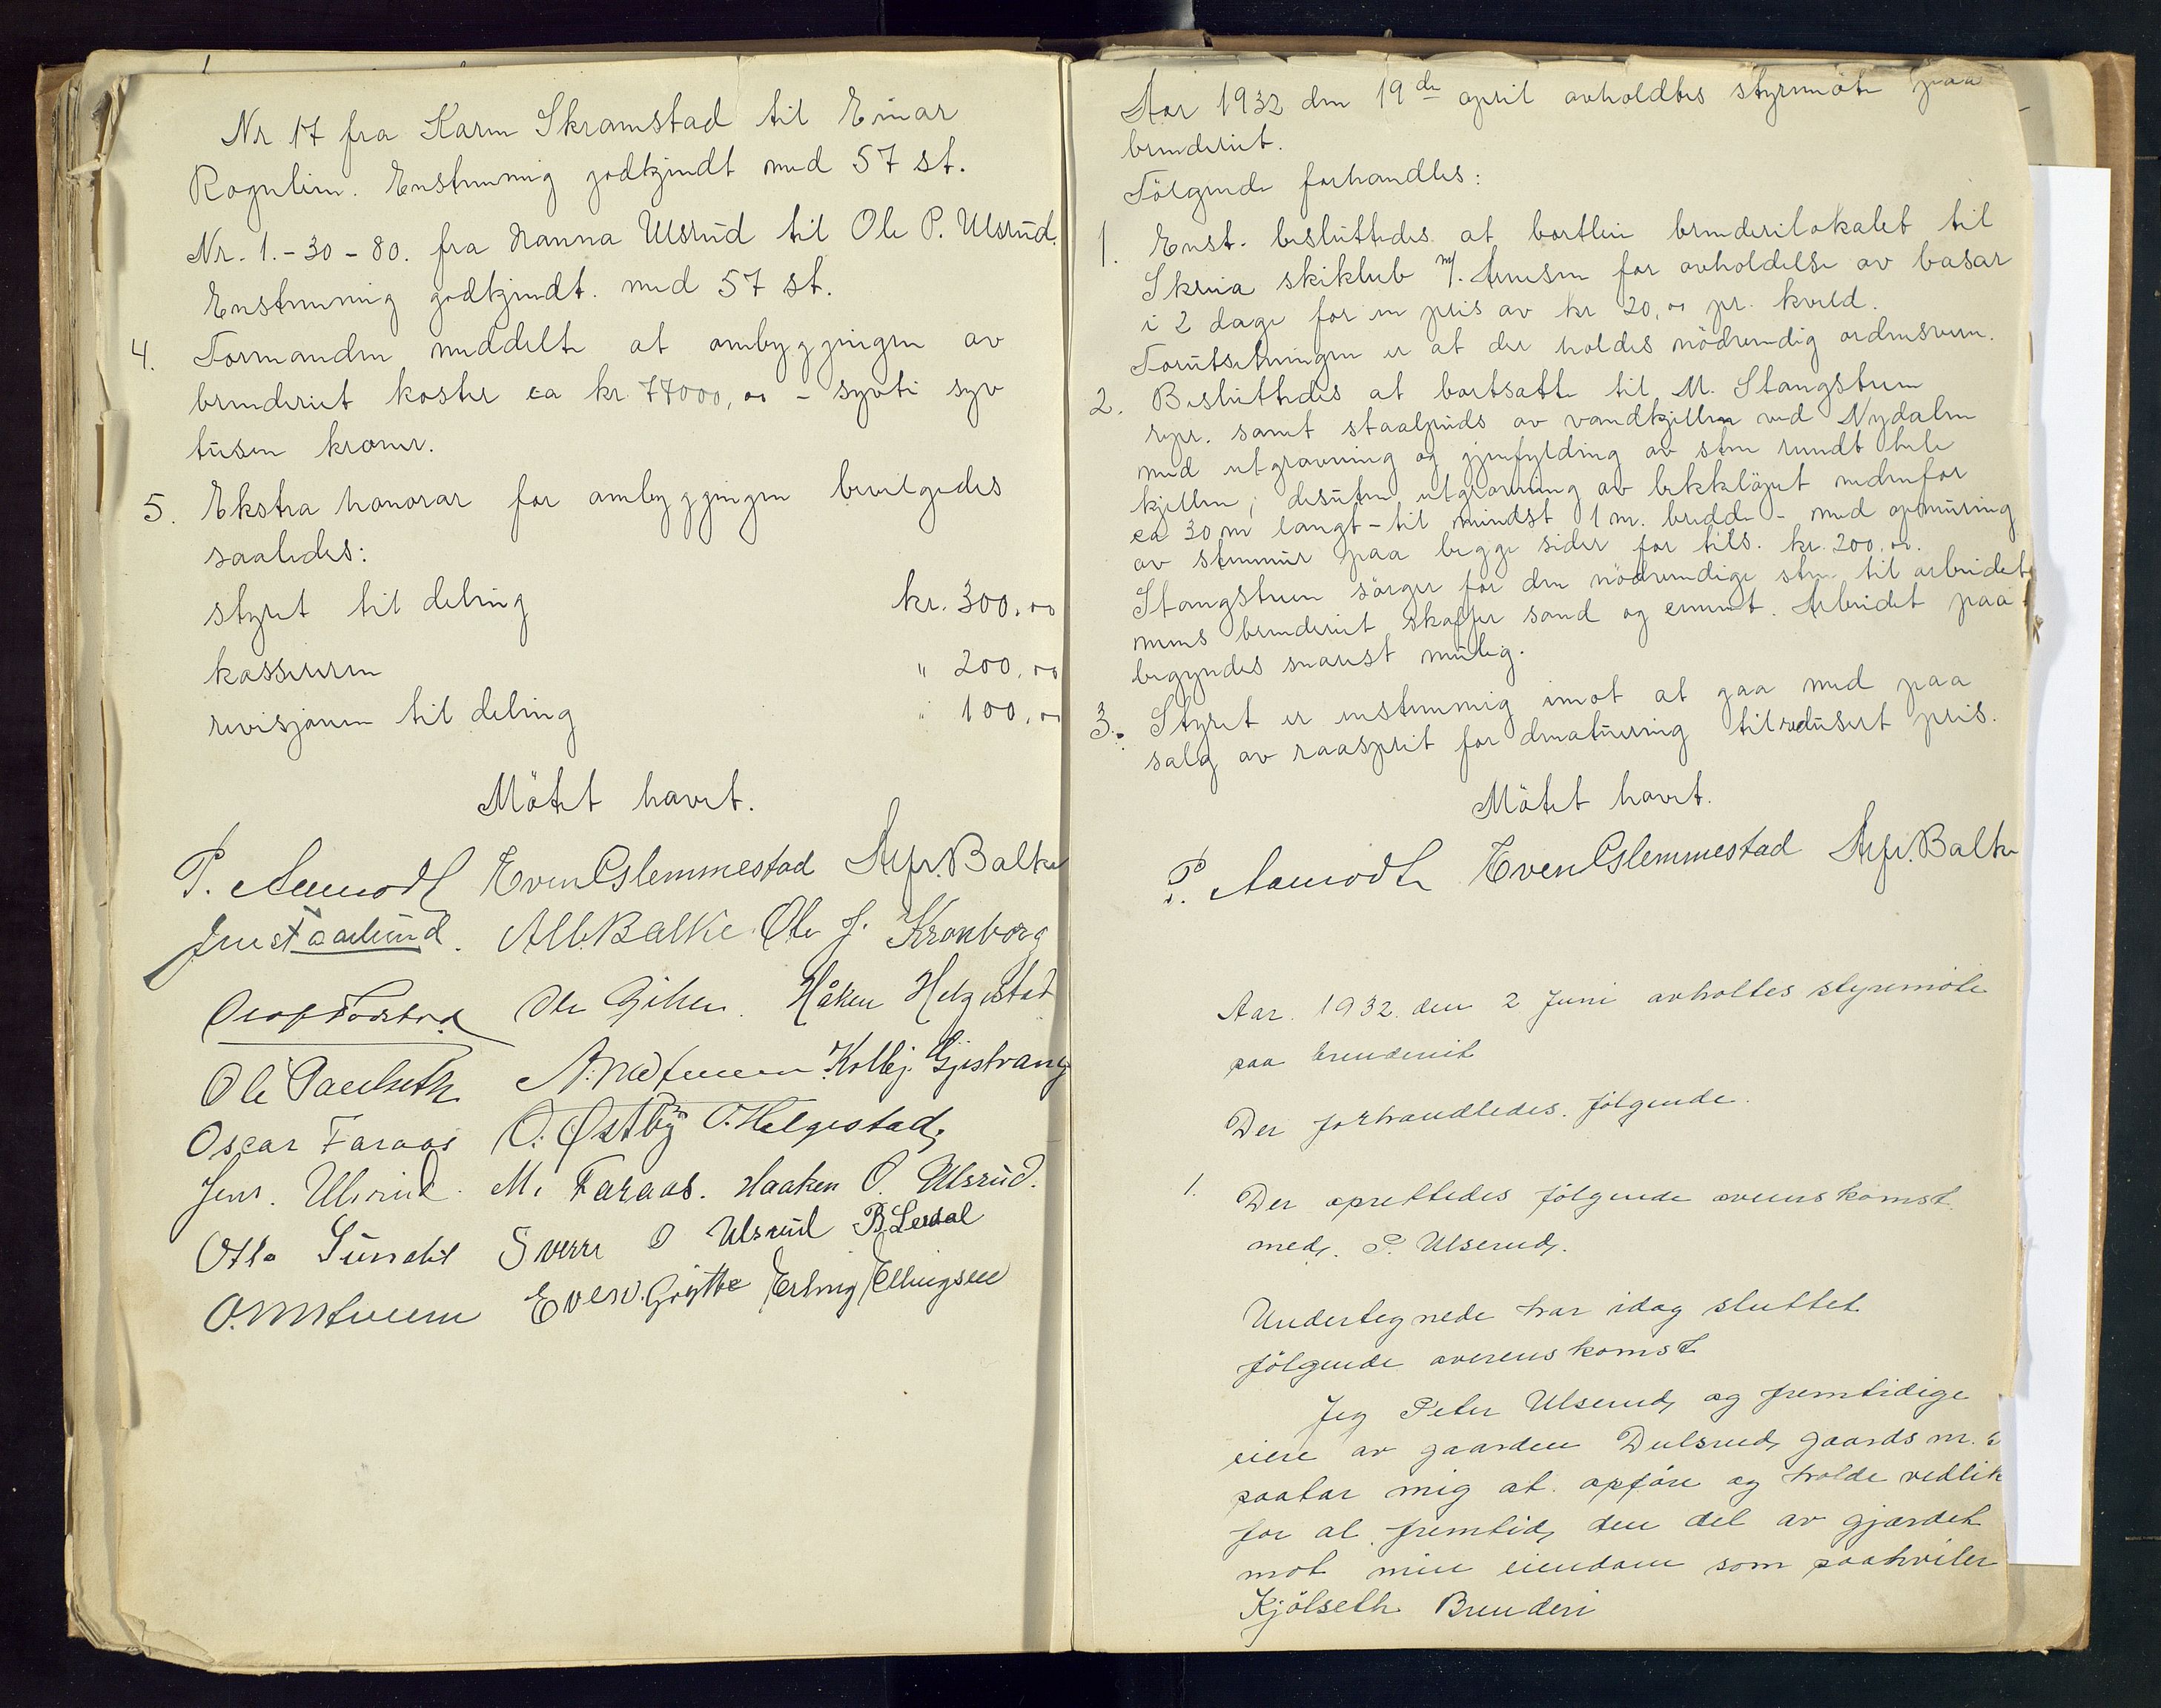 Nr 17 fra Karen Skramstad til Einar
Rognlien. Enstemmig godkjendt med 57 st.
Nr. 1.-30-80. fra Hanna Ulsrud til Ole P. Ulsrud.
Enstemmig godkjendt. med 57 st.
4. Formanden meddelte at ombyggningen av
brenderiet koster ca kr. 77000,00 - sytti syv
tusen kroner.
5. Ekstra honorar for ombyggingen bevilgedes
saaledes:
styret til deling kr. 300,00
kassereren " 200,00
revisjonen til deling " 100,00
Mötet hævet.
P. Aamodt Even Eslemmestad Alfr. Balke
Alb. Balke Ole J. Kronborg
Ole Håken Helgestad
Ole Paulseth Kolbj. Gjestvang
Oscar Faraas O. Østby O. Helgestad
Jens. Ulsrud. M. Faraas. Haaken O. Ulsrud.
Otto Sverre O Ulsrud B. Lerdal
Even. Gøythe Erling Ellingsen
Aar 1932 den 19de april avholdtes styremöte paa
brenderiet.
Fölgende forhandles:
1. Enst. besluttedes at bortleie brenderilokalet til
Skreia skiklub v/. Arnesen for avholdelse av basar
i 2 dage for en pris av kr 20,00 pr. kveld.
Forutsetningen er at der holdes nödvendig ordensvern.
2. Besluttedes at bortsætte til M. Stangstuen
repr. samt staalpuds av vandkjellen ved Nydalen
med utgravning og gjenfylding av sten rundt hele
kjellen; desuten utgravning av bekkelöpet nedenfor
ca 30 m langt - til mindst 1 m. bredde - med opmuring
av stenmur paa begge sider for tils. kr. 200,00.
Stangstuen sörger for den nödvendige sten til arbeidet
mens brenderiet skaffer sand og cement. Arbeidet paa-
begyndes snarest mulig.
3. Styret er enstemmig imot at gaa med paa
salg av raasprit for denaturering til redusert pris.
Mötet hævet.
P. Aamodt Even Eslemmestad Alfr. Balke
Aar. 1932. den 2 Juni avholtes styremöte
paa brenderiet
Der forhandledes. følgende.
1. Der oprettedes følgende overenskomst
med. P. Ulserud.
Undertegnede har idag sluttet
følgende overenskomst
Jeg Peter Ulserud, og fremtidige
eiere av gaarden Dulsrud, gaards nr.
paatar mig at. opføre og holde vedlik
for al fremtid, den del av gjærdet
mot min eiendom som paahviler
Kjölseth Brenderi